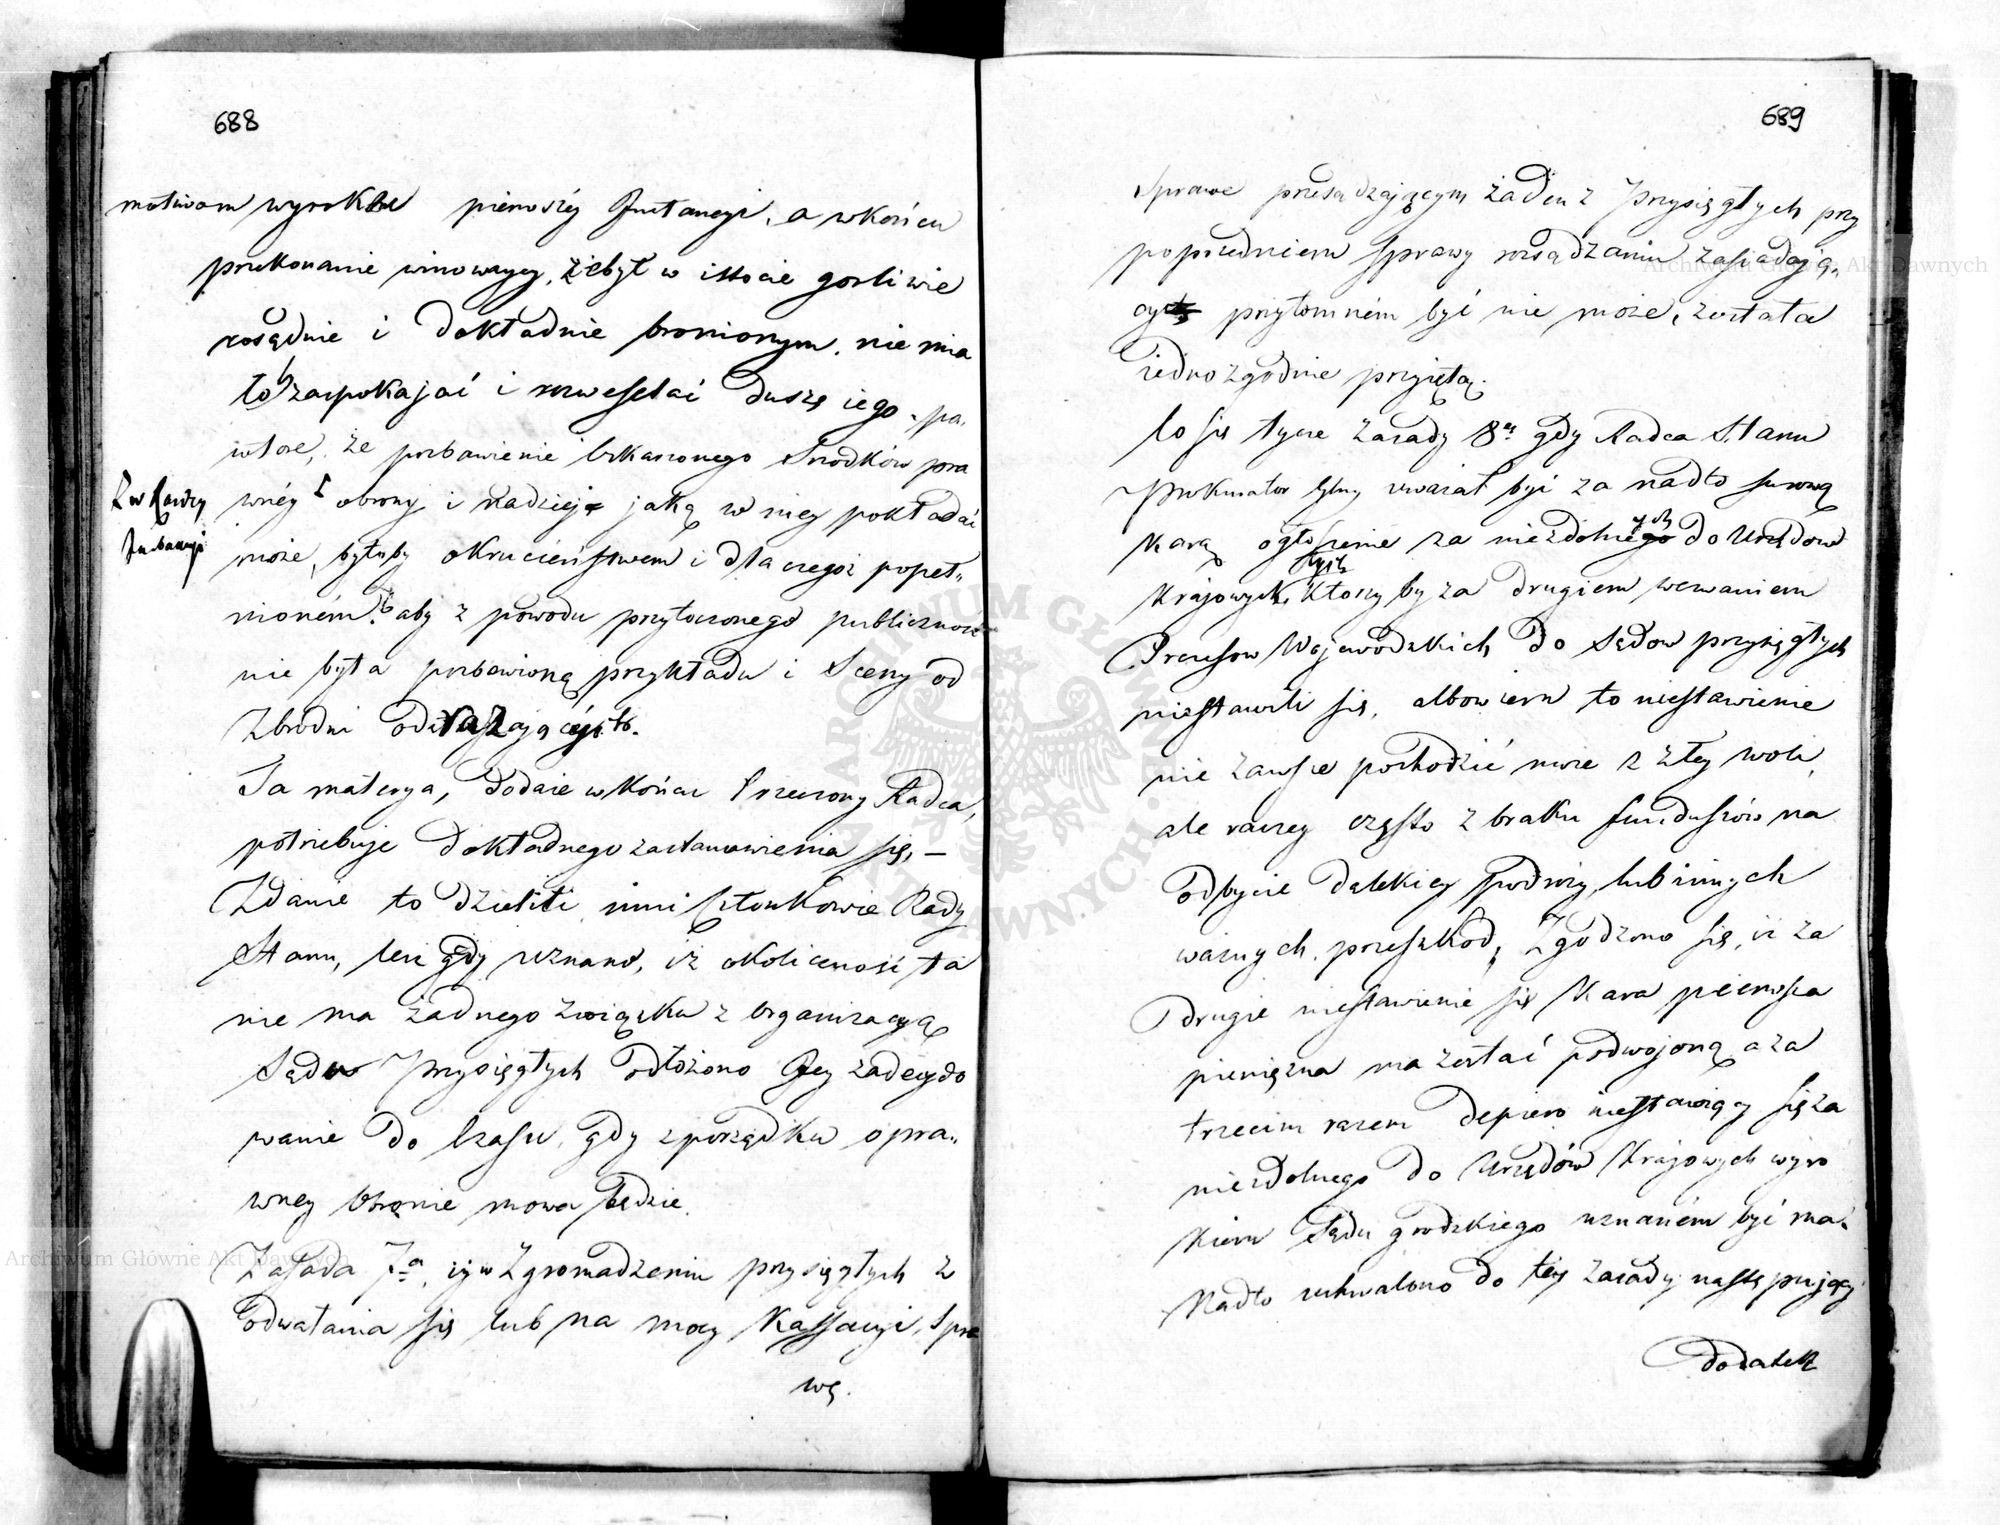 688
motivom wyroku pierwszéj Instancyi, a wkońcu
przekonanie winowaycy, żebył w istocie gorliwie
rosądnie i dokładnie bronionym, nie mia
łoby zaspokajać i rozweselać duszę iego. po„
wtóre, że pozbawienie Oskarzonego Srodków pra
wnéy obrony i nadzieję jaką w niey pokładać
w drugiey
Instancyi
może, byłoby okrucieństwem i dla czegoż popeł„
nioném? aby z powodu przytoczonego publiczność
nie była pozbawioną przykładu i Sceny od
Zbrodni odstraszającéy.
Ta materya, dodaie wkońcu Rzeczony Radca,
potrzebuje dokładnego zastanowienia się, —
Zdanie to dzielili inni Członkowie Rady
Stanu, lecz gdy uznano, iż okoliczność ta
nie ma żadnego związku z organizacyą
Sądów Przysięgłych odłożono Jey zadecydo
wanie do Czasu, gdy z porządku o pra„
wney Obronie mowa będzie.
Zasada 7ª, iż w Zgromadzeniu przysięgłych z
odwołania się lub na mocy Kassacyi, Spra
wę.
689
Sprawe przesądzającym żaden z Przysięgłych przy
poprzedniem sprawy rozsądzaniu zasiadają„
cy przytomném być nie może, została
iednozgodnie przyiętą.
Co się tycze Zasady 8éy gdy Radca Stanu
Prokurator Glny uważał być za nadto surową
Karą ogłoszenie za niezdolnych do Urzędów
Krajowych tych, którzy by za drugiem wezwaniem
Prezesow Wojewodzkich do Sądow przysięgłych
niestawili się, albowiem to niestawienie
nie zawsze pochodzić może z złey woli,
ale raczey często z braku funduszów na
odbycie dalekiey podroży, lub innych
ważnych przeszkod, Zgodzono się, iż za
drugie niestawienie się Kara pierwsza
pieniężna ma zostać podwojoną a za
trzecim razem dopiero niestawiący się za
niezdolnego do Urzędów Krajowych wyro
kiem Sądu grodzkiego uznaném być ma.
Nadto uchwalono do téy zasady następujący
dodatek